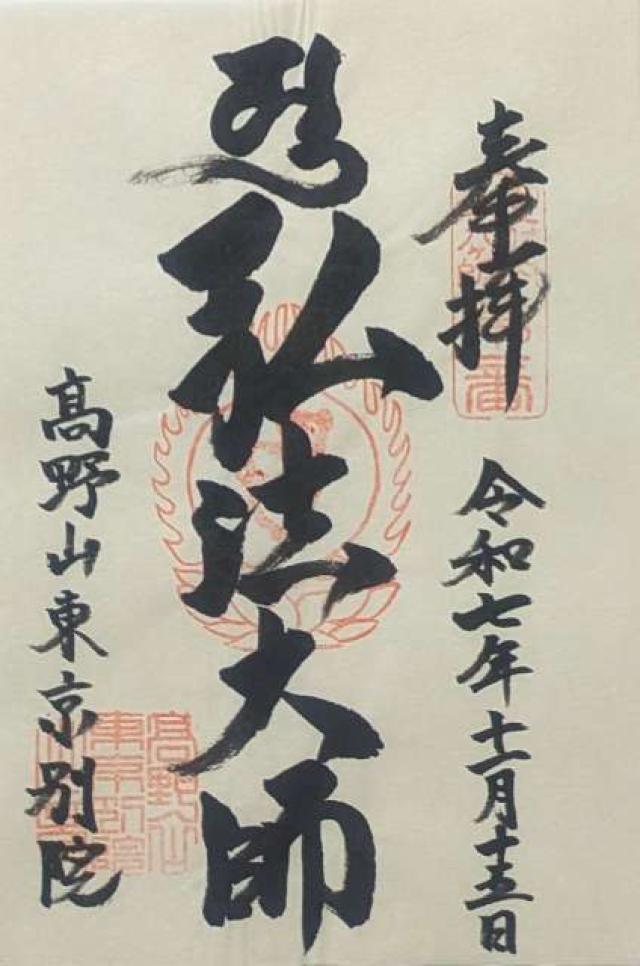 奉拝
令和七年十一月十五日
弘法大師
高野山東京別院
高野山
東京別院